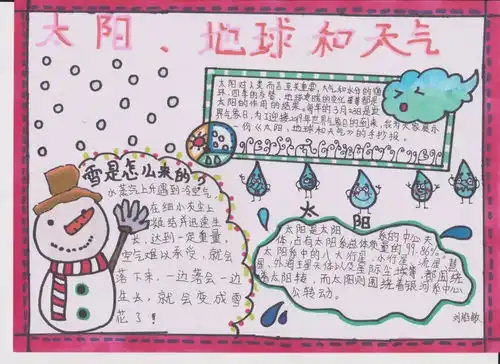 太阳、地球和天气
太阳对人类而言至关重要,大气和水分的循
环,四季的交替,地球表面的变化等等都是
太阳的作用的结果。每年的3月23日是世
界气象日,为了迎接
世界气象日的到来,我为大家展办
一份《太阳、地球和天气》的手抄报。
雪是怎么来的
水蒸气上升遇到冷空气,
在细小灰尘上
凝结并迅速生
长,达到一定重量,
空气难以承受,就会
落下来,一边落会一边
生长,就会变成雪
花了!
太 阳
太阳是太阳系的中心天
体,占有太阳系总体质量的99.86%。
太阳系中的八大行星、小行星、流星、彗
星、外海王星天体以及星际尘埃等,都围绕
着太阳转,而太阳则围绕着银河系中心
公转动。